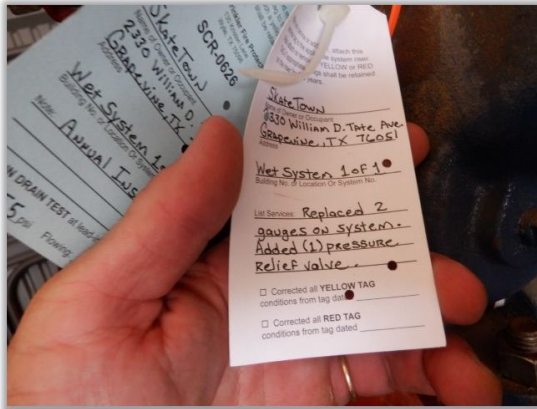 SkateTown
Name of Owner or Occupant
2330 William D.
GRAPEVINE, TX
Address
Wet System 1
Building No. or Location Or System
Note:
ANNUAL INS
SCR-0626
DRAIN TEST at lead-i
5 psi Flowing
attach this
system riser.
YELLOW or RED
shall be retained
SkateTown
Name of Owner or Occupant
2330 William D. Tate Ave.
GRAPEVINE, TX 76051
Address
Wet System 1 of 1
Building No. or Location Or System No.
List Services: Replaced 2
gauges on system.
Added (1) pressure
Relief valve.
☐ Corrected all YELLOW TAG
conditions from tag dated
☐ Corrected all RED TAG
conditions from tag dated